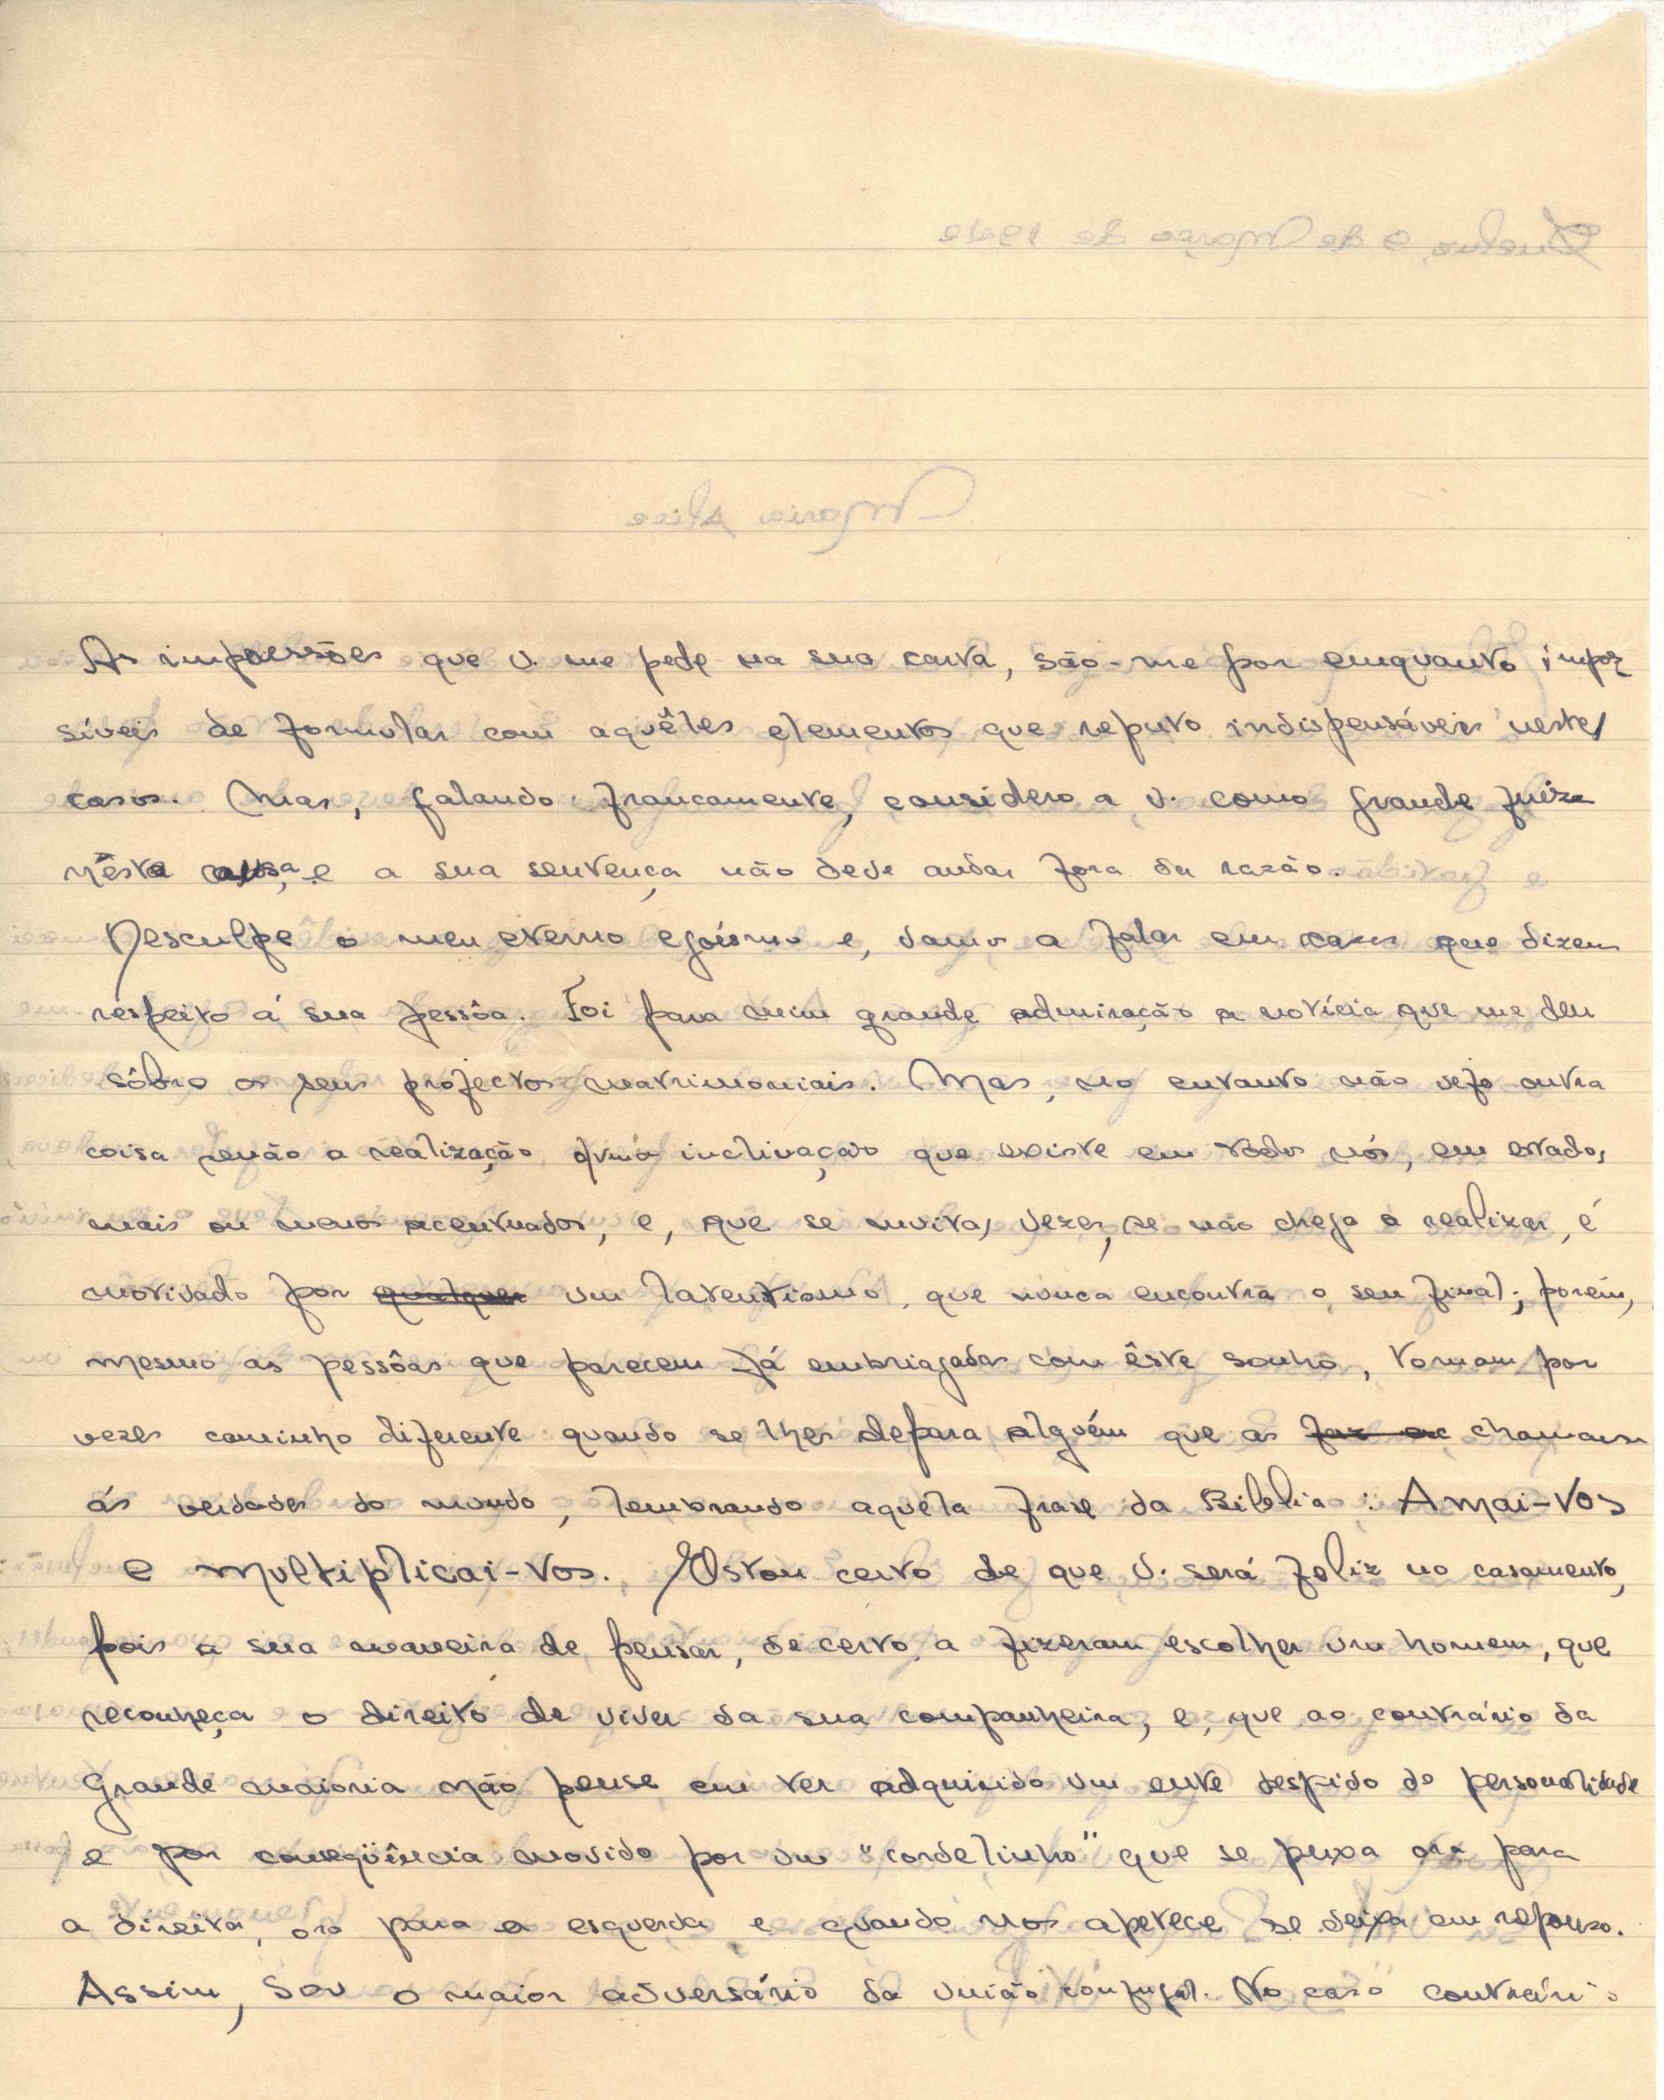 As impressões que v. me pede na sua carta, são-me por emquanto impos
síveis de formular com aquêles elementos que reputo indispensáveis nestes
casos. Mas, falando francamente, considero a v. como grande juiza
nésta causa, e a sua sentença não deve andar fora da razão.
Desculpe o meu eterno egoísmo e, vamos a falar em casos que dizem
respeito á sua pessôa. Foi para mim grande admiração a notícia que me deu
sôbre os seus projectos matrimoniais. Mas, no entanto não vejo outra
coisa senão a realização duma inclinação que existe em todos nós, em estados,
mais ou menos acentuados, e, que se muitas vezes, se não chega a realizar, é
motivado por qualquer um latentismo, que nunca encontra o seu final; porém,
mesmo as pessôas que parecem já embriagadas com êste sonho, tomam por
vezes caminho diferente quando se lhes depara alguém que as chamam
ás verdades do mundo, lembrando aquela frase da Biblia: Amai-vos
e multiplicai-vos. Estou certo de que v. será feliz no casamento,
pois a sua maneira de pensar, de certo a fizeram escolher um homem, que
reconheça o direito de viver da sua companheira, e, que ao contrário da
grande maioria não pense em ter adquirido um ente despido de personalidade
e por conseqüência movido por um "cordelinho" que se puxa ora para
a direita, ora para a esquerda e quando nos apetece se deixa em repouso.
Assim, sou o maior adversário da união conjugal. No caso contrário